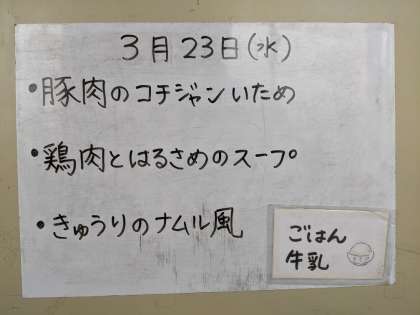 3月23日(水)
•豚肉のコチジャンいため
•鶏肉とはるさめのスープ
•きゅうりのナムル風
ごはん
牛乳